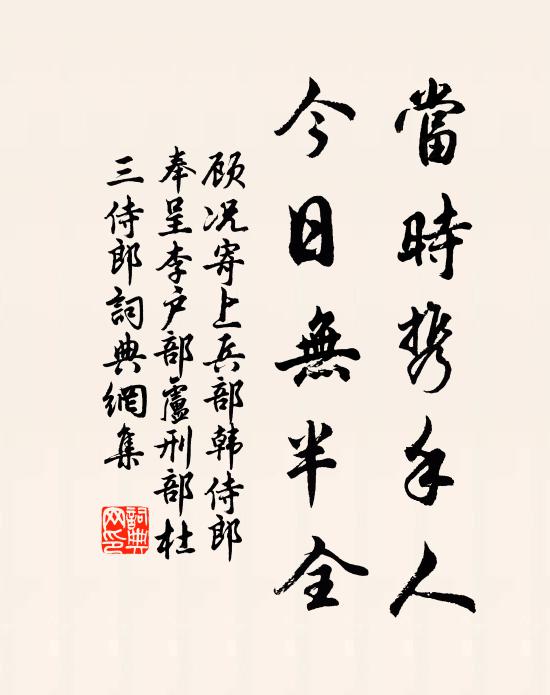 當時携手人
今日無半全
顾况寄上兵部韩侍郎
奉呈李户部盧刑部杜
三侍郎詞典網集
詞典網印